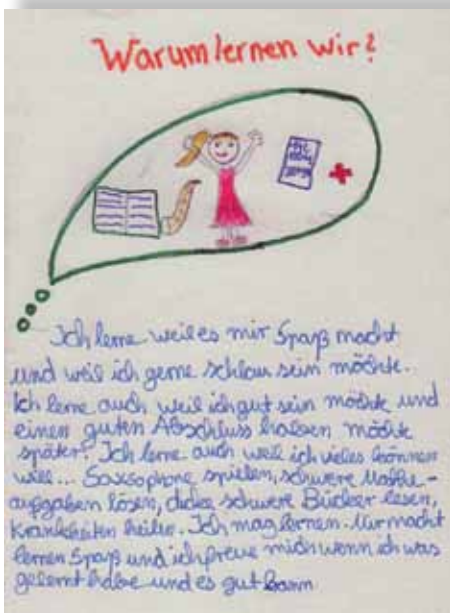 Warum lernen wir?
Ich lerne weil es mir Spaß macht
und weil ich gerne schlau sein möchte.
Ich lerne auch weil ich gut sein möchte und
einen guten Abschluss haben möchte
später! Ich lerne auch weil ich vieles können
will... Saxophone spielen, schwere Mathe-
aufgaben lösen, dicke schwere Bücher lesen,
Krankheiten heilen. Ich mag lernen. Mir macht
lernen Spaß und ich freue mich wenn ich was
gelernt habe und es gut kann